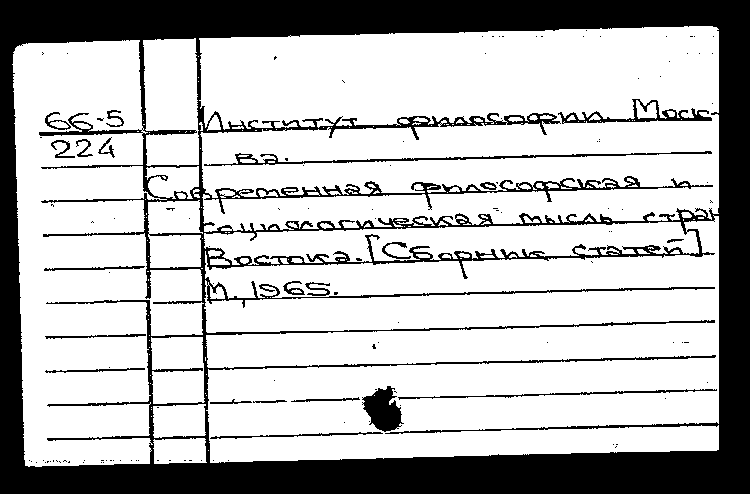 66-5 Институт философии. Моск-
224 ва.
Современная философская и
социологическая мысль стран
Востока. [Сборник статей]
М., 1965.